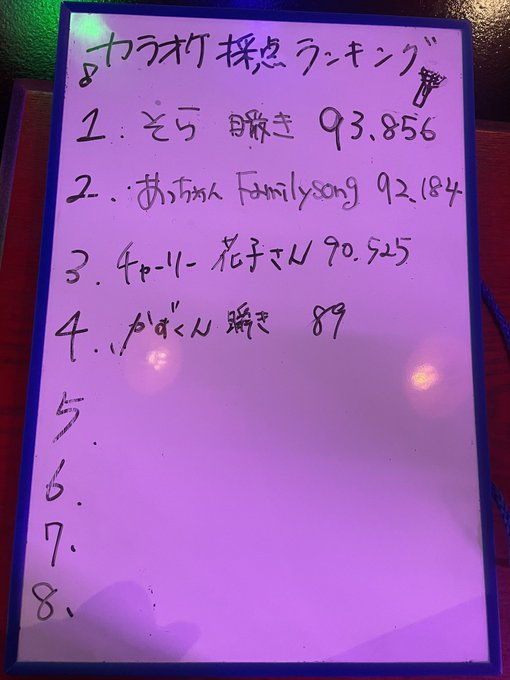 カラオケ採点ランキング
1. そら 瞬き 93.856
2. あっちゃん Family song 92.184
3. チャーリー 花子さん 90.525
4. かずくん 瞬き 89
5.
6.
7.
8.